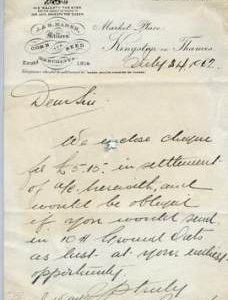 HIS MAJESTY THE KING
J. & B. MARSH,
Millers
CORN AND SEED
MERCHANTS
Estabd 1814
Market Place
Kingston on Thames
July 24 1902
Dear Sir
We enclose cheque
for £5.15. in settlement
of a/c herewith, and
would be obliged
if you would send
in 10 Ground Oats
as last at your earliest
opportunity.